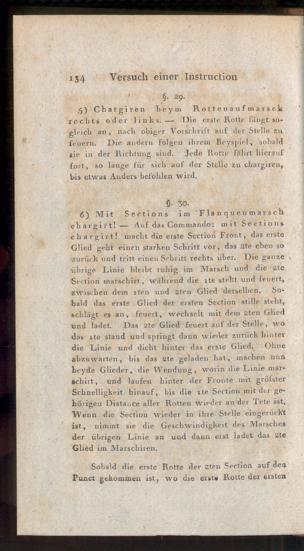 134 Versuch einer Instruction
§. 29.
5) Chargiren beym Rottenaufmarsch
rechts oder links. — Die erste Rotte fängt so-
gleich an, nach obiger Vorschrift auf der Stelle zu
feuern. Die andern folgen ihrem Beyspiel, sobald
sie in der Richtung sind. Jede Rotte fährt hierauf
fort, so lange für sich auf der Stelle zu chargiren,
bis etwas Anders befohlen wird.
§. 30.
6) Mit Sections im Flanquenmarsch
chargirt! — Auf das Commando: mit Sections
chargirt! macht die erste Section Front, das erste
Glied geht einen starken Schritt vor, das 2te eben so
zurück und tritt einen Schritt rechts über. Die ganze
übrige Linie bleibt ruhig im Marsch und die 2te
Section marschirt, während die 1te steht und feuert,
zwischen dem 1ten und 2ten Glied derselben. So-
bald das erste Glied der ersten Section stille steht,
schlägt es an, feuert, wechselt mit dem 2ten Glied
und ladet. Das 2te Glied feuert auf der Stelle, wo
das 1te stand und springt dann wieder zurück hinter
die Linie und dicht hinter das erste Glied. Ohne
abzuwarten, bis das 2te geladen hat, machen nun
beyde Glieder, die Wendung, worin die Linie mar-
schirt, und laufen hinter der Fronte mit größter
Schnelligkeit hinauf, bis die 1te Section mit der ge-
hörigen Distance aller Rotten wieder an der Tete ist.
Wenn die Section wieder in ihre Stelle eingerückt
ist, nimmt sie die Geschwindigkeit des Marsches
der übrigen Linie an und dann erst ladet das 2te
Glied im Marschiren.
Sobald die erste Rotte der 2ten Section auf den
Punct gekommen ist, wo die erste Rotte der ersten